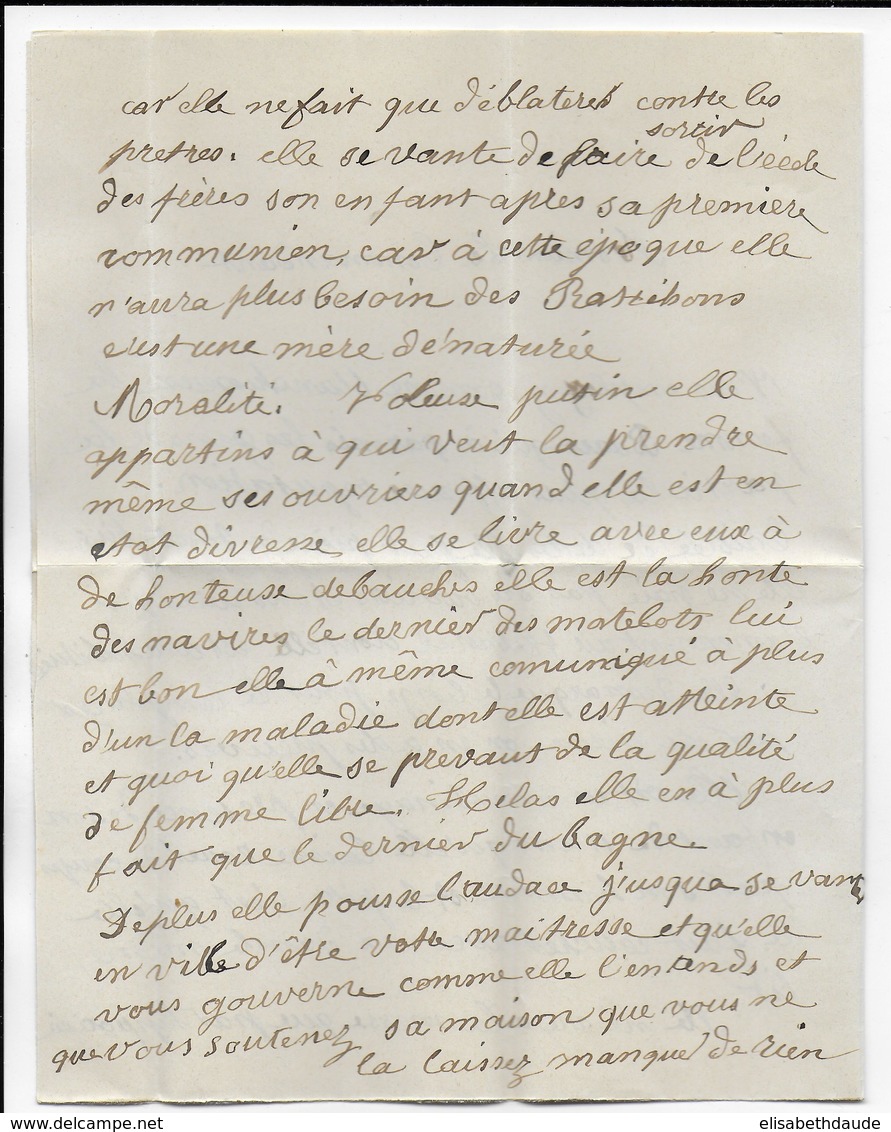 car elle ne fait que déblaterer contre les
sortir
pretres. elle se vante de faire de l'école
des frères son enfant apres sa premiere
communion, car à cette époque elle
n'aura plus besoin des Rattibons
c'est une mère dénaturée
Moralité. Voleuse putin elle
appartins à qui veut la prendre
même ses ouvriers quand elle est en
etat divresse elle se livre avec eux à
de honteuse debauches elle est la honte
des navires le dernier des matelots lui
est bon elle â même comuniqué à plus
d'un la maladie dont elle est atteinte
et quoi qu'elle se prevaut de la qualité
de femme libre. Helas elle en à plus
fait que le dernier du bagne.
De plus elle pousse l'audace j'usqua se vante
en ville d'être votre maitresse et qu'elle
vous gouverne comme elle l'entends et
que vous soutenez sa maison que vous ne
la laissez manque de rien
elisabethdaude